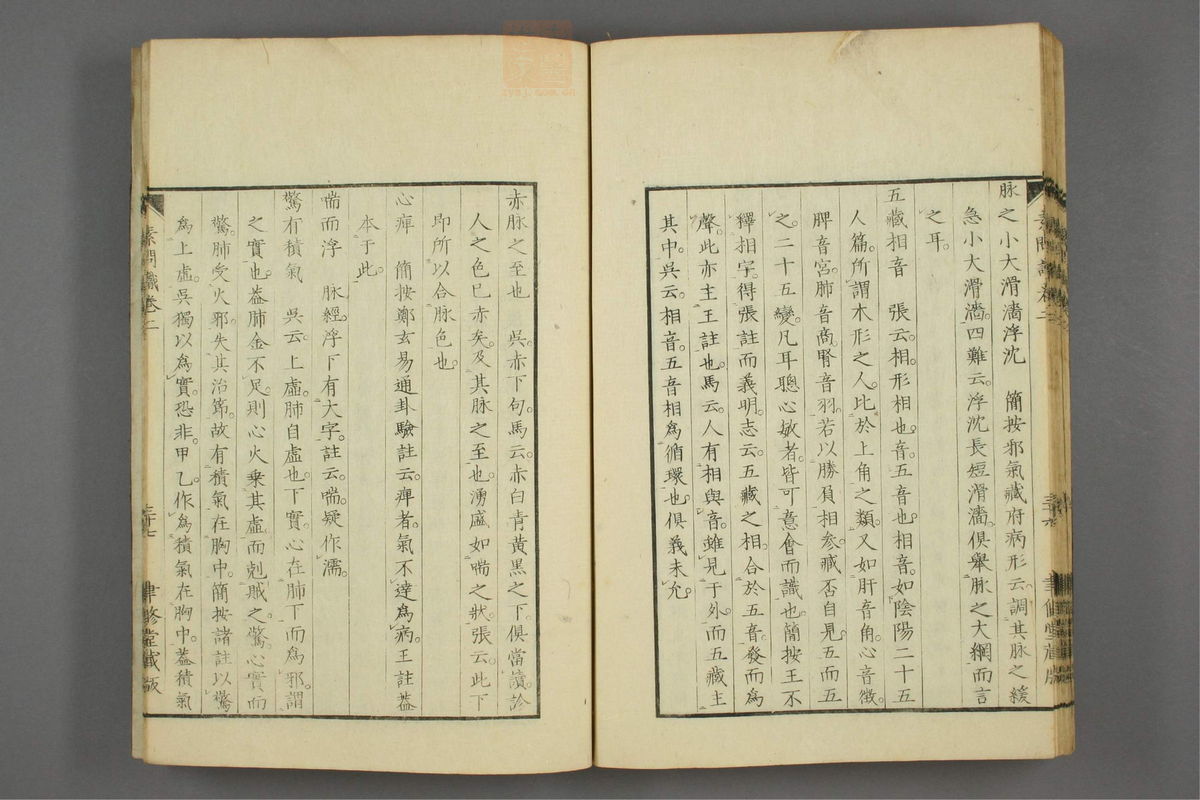 脉之小大滑濇浮沈　簡按邪氣藏府病形云調其脉之緩
急小大滑濇。四難云。浮沈長短滑濇。俱舉脉之大綱而言
之耳。
五藏相音　張云。相形相也。音。五音也。相音。如陰陽二十五
人篇。所謂木形之人。比於上角之類。又如肝音角。心音徵。
脾音宮。肺音商。腎音羽。若以勝負相參。臧否自見。五而五
之。二十五變。凡耳聰心敏者。皆可意會而識也。簡按王不
釋相字。得張註而義明。志云。五藏之相。合於五音。發而爲
聲。此亦主王註也。馬云。人有相與音。雖見于外。而五藏主
其中。吳云。相音。五音相爲循環也。俱義未允。
赤脉之至也　吳。赤下句。馬云。赤白青黃黑之下。俱當讀。診
人之色已赤矣。及其脉之至也。湧盛如喘之狀。張云。此下
即所以合脉色也。
心痺　簡按鄭玄易通卦驗註云。痺者。氣不達爲病。王註蓋
本于此。
喘而浮　脉經。浮下有大字。註云。喘。疑作濡。
驚有積氣　吳云。上虛。肺自虛也。下實。心在肺下而爲邪。謂
之實也。蓋肺金不足。則心火乘其虛。而剋賊之。驚。心實而
驚。肺受火邪。失其治節。故有積氣在胸中。簡按諸註以驚
爲上虛。吳獨以爲實。恐非。甲乙。作爲積氣在胸中。蓋積氣
素問識卷二
三十七
聿修堂藏版